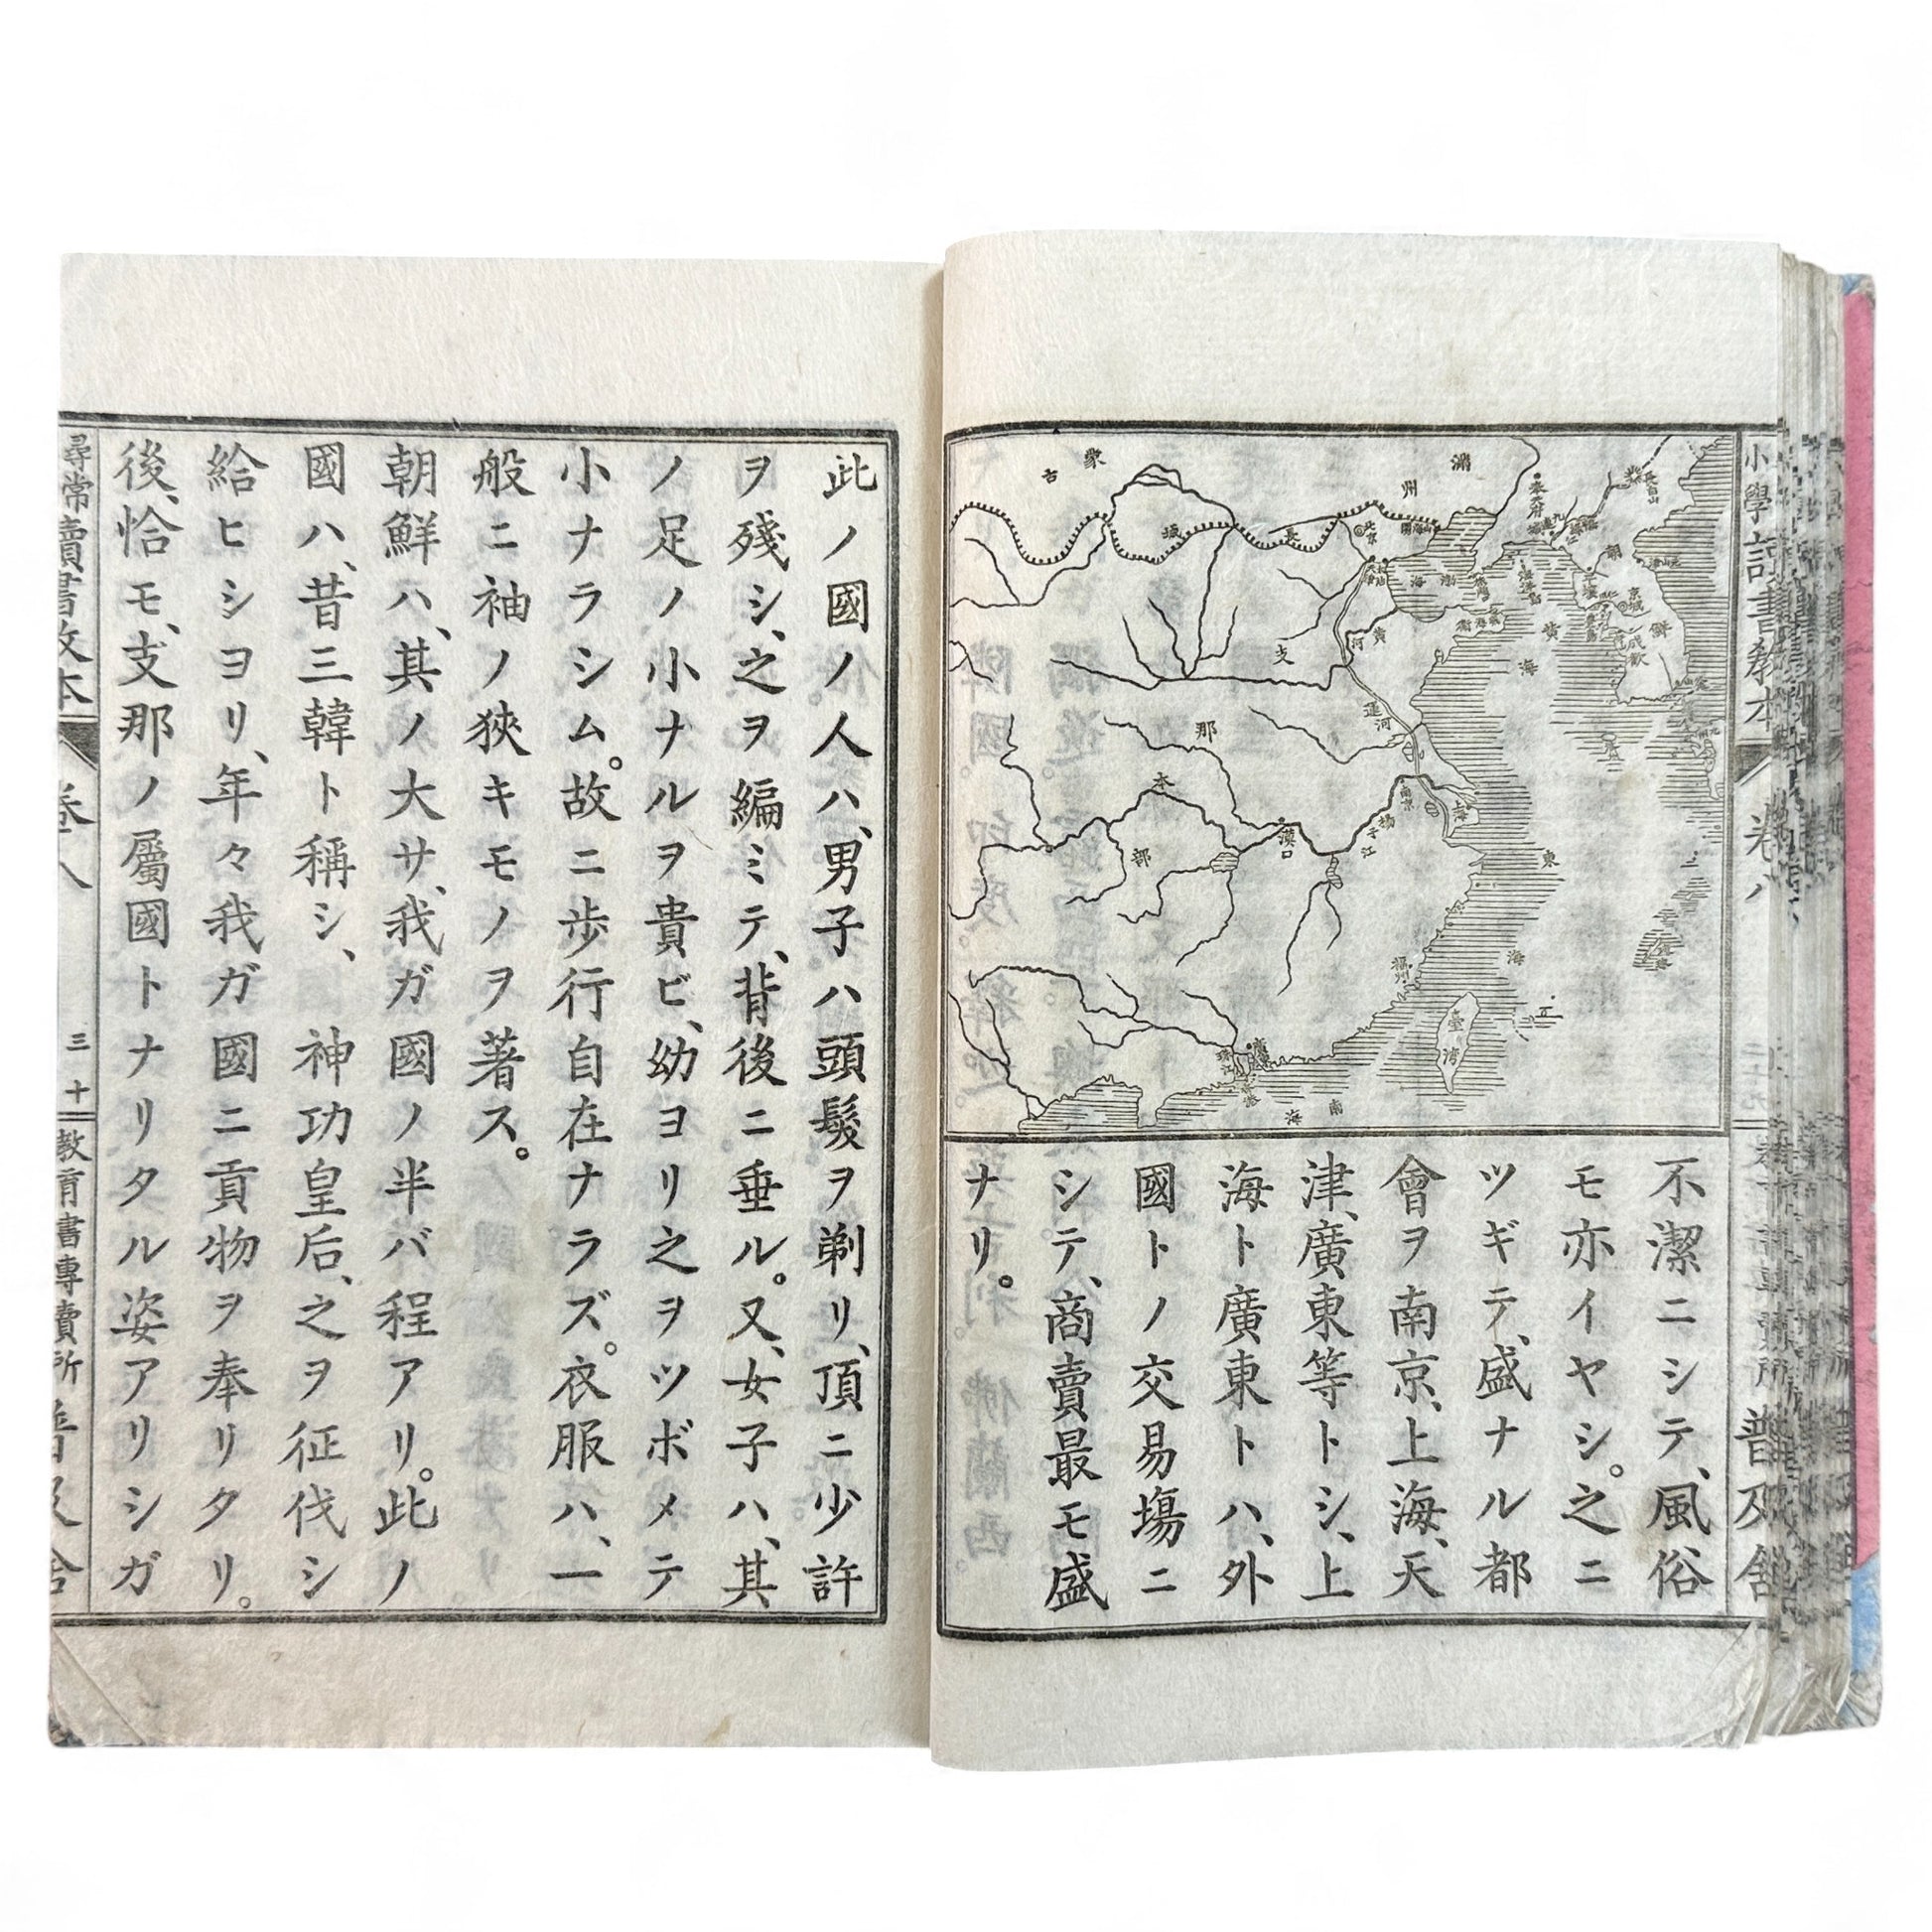 小學讀書教本
卷八
普及舍
滿州
蒙古
長城
長白山
奉天府
北京
山海關
朝鮮
京城
平壤
成歡
渤海
黄海
黄河
運河
支那本部
南京
上海
楊子江
漢口
東海
福州
臺湾
珠江
南海
不潔ニシテ、風俗
モ亦イヤシ。之ニ
ツギテ、盛ナル都
會ヲ南京、上海、天
津、廣東等トシ、上
海ト廣東トハ、外
國トノ交易塲ニ
シテ、商賣最モ盛
ナリ。
此ノ國ノ人ハ、男子ハ頭髮ヲ剃リ、頂ニ少許
ヲ殘シ、之ヲ編ミテ、背後ニ垂ル。又、女子ハ、其
ノ足ノ小ナルヲ貴ビ、幼ヨリ之ヲツボメテ
小ナラシム。故ニ歩行自在ナラズ。衣服ハ、一
般ニ袖ノ狹キモノヲ著ス。
朝鮮ハ、其ノ大サ、我ガ國ノ半バ程アリ。此ノ
國ハ、昔三韓ト稱シ、神功皇后、之ヲ征伐シ
給ヒシヨリ、年々我ガ國ニ貢物ヲ奉リタリ。
後、恰モ、支那ノ屬國トナリタル姿アリシガ
尋常讀書教本
卷八
三十
教育書專賣所
普及舍